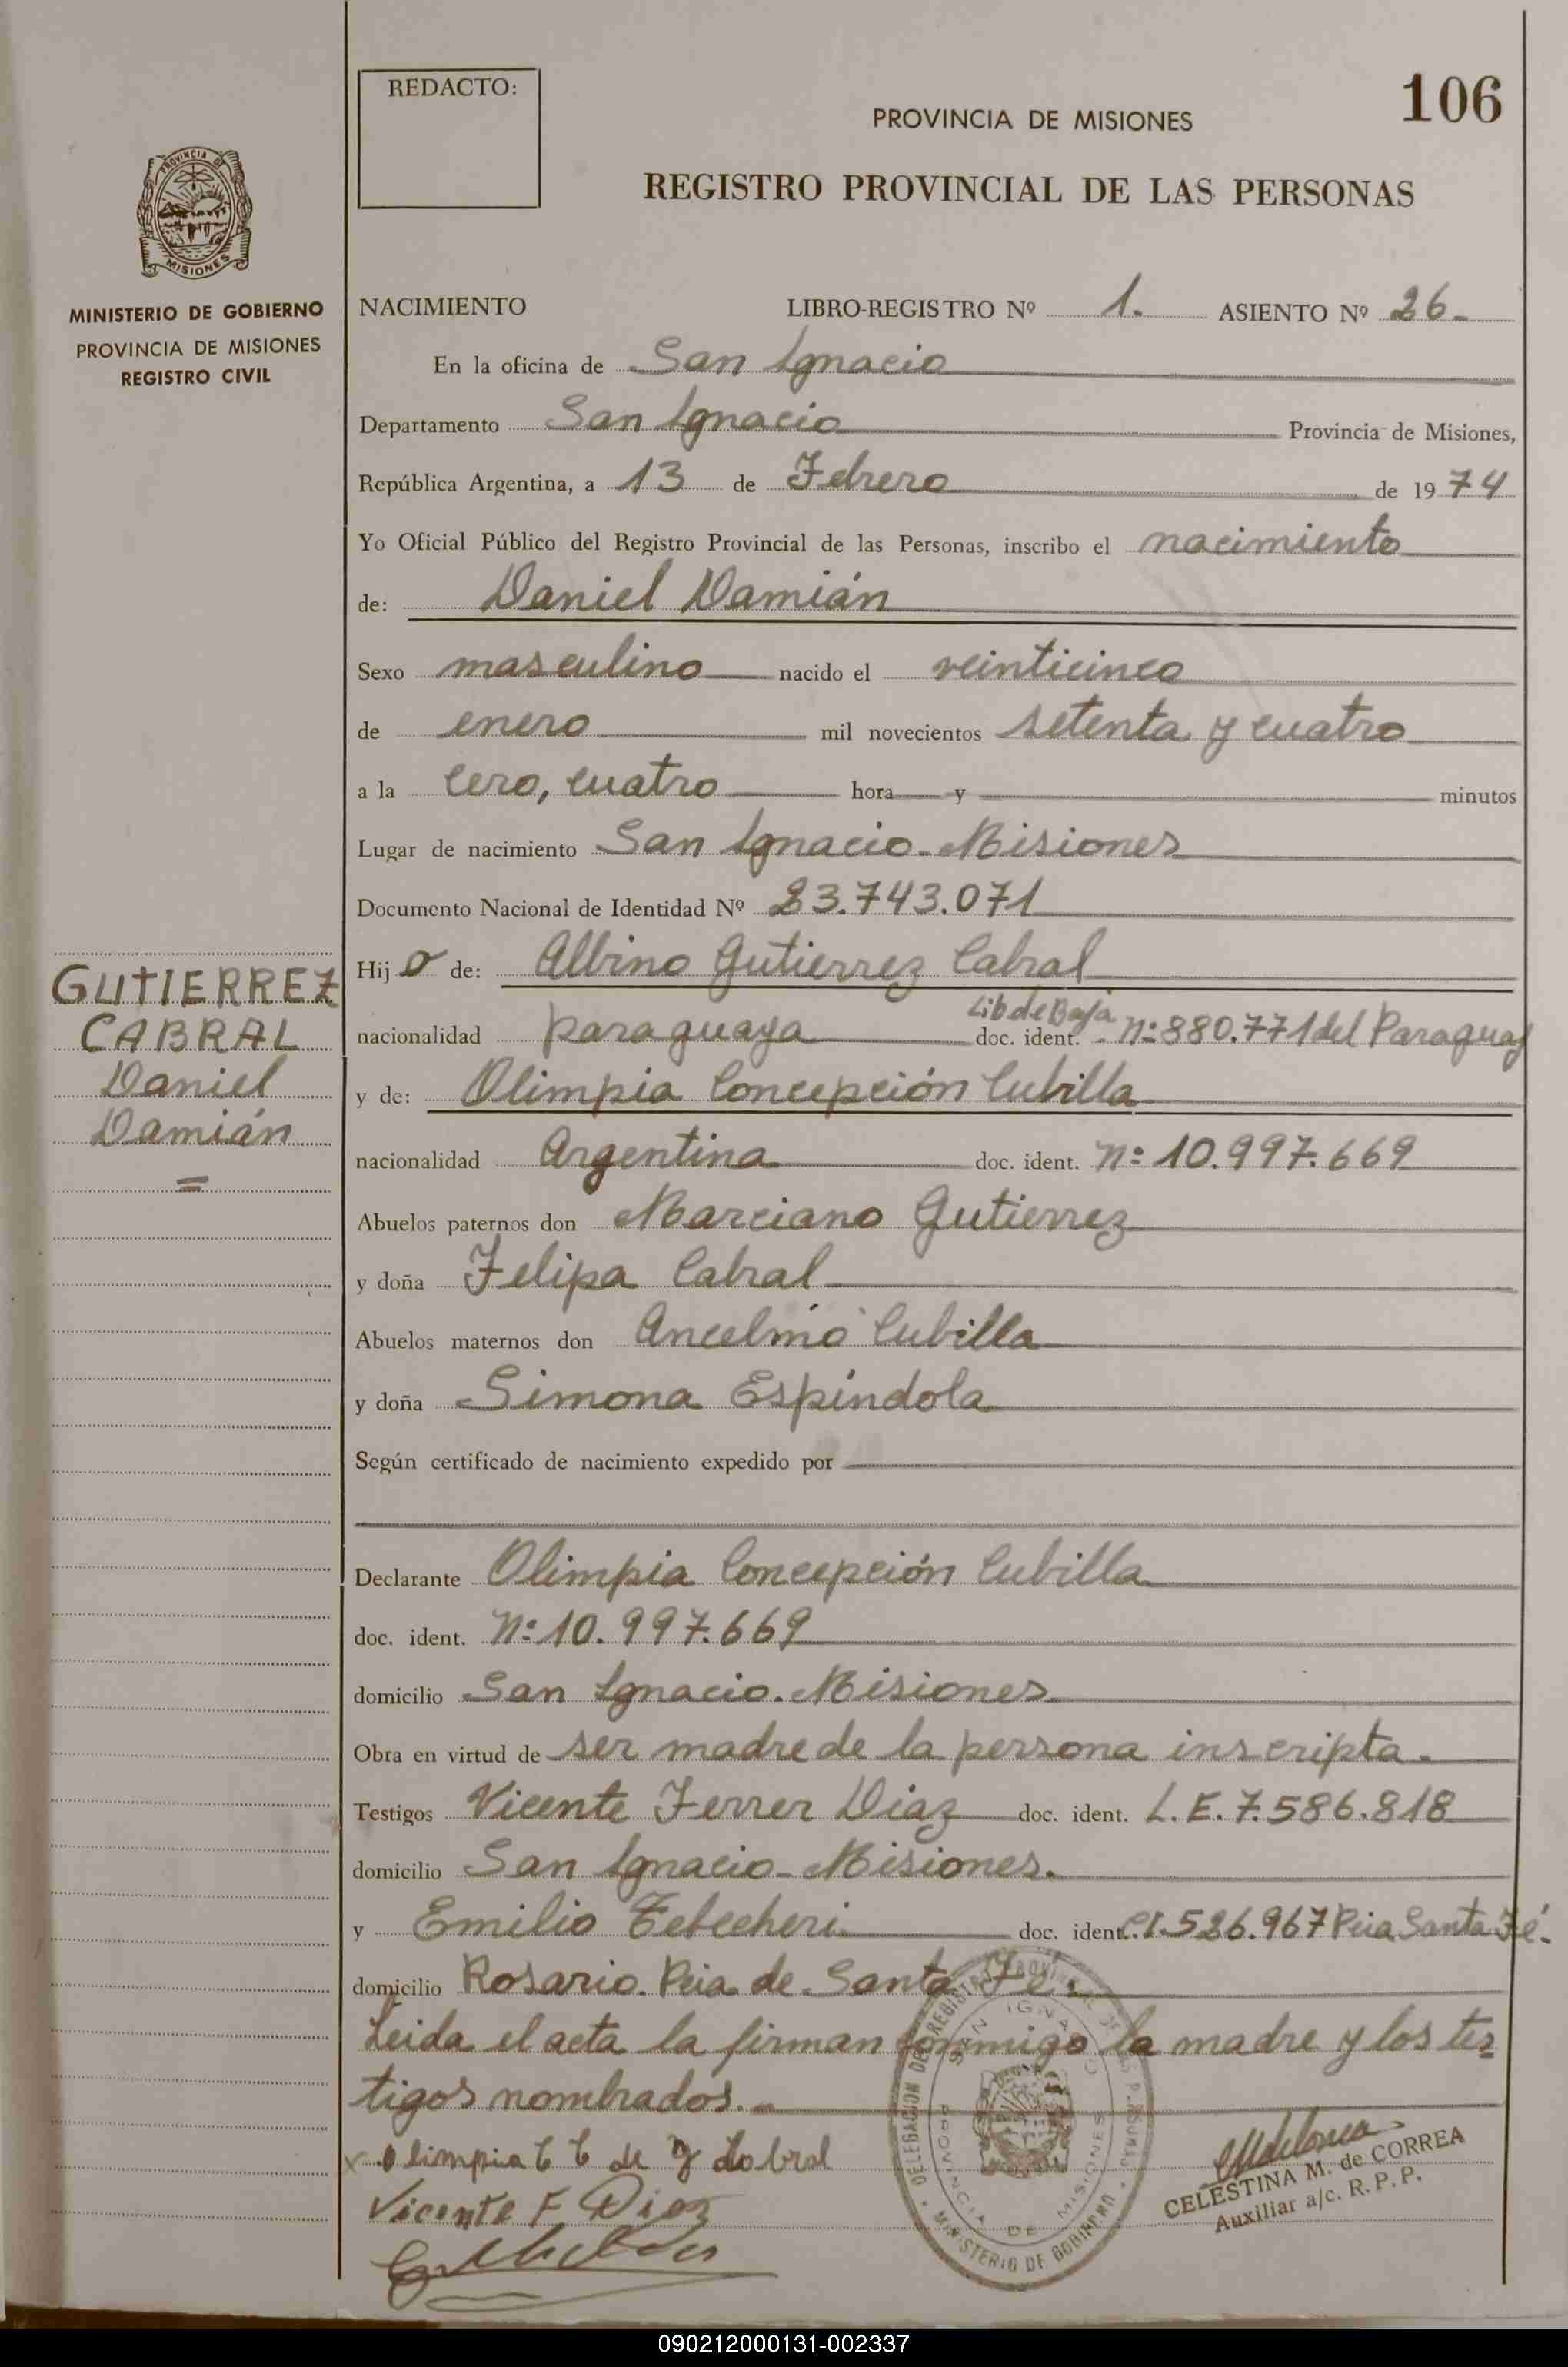 REDACTO:
106
PROVINCIA DE MISIONES
REGISTRO PROVINCIAL DE LAS PERSONAS
PROVINCIA DE
MISIONES
MINISTERIO DE GOBIERNO
PROVINCIA DE MISIONES
REGISTRO CIVIL
NACIMIENTO LIBRO-REGISTRO Nº 1. ASIENTO Nº 26-
En la oficina de San Ignacio
Departamento San Ignacio Provincia de Misiones,
República Argentina, a 13 de Febrero de 1974
Yo Oficial Público del Registro Provincial de las Personas, inscribo el nacimiento
de: Daniel Damián
Sexo masculino nacido el veinticinco
de enero mil novecientos setenta y cuatro
a la cero, cuatro hora y minutos
Lugar de nacimiento San Ignacio-Misiones
Documento Nacional de Identidad Nº 23.743.071
GUTIERREZ
CABRAL
Daniel
Damián
Hijo de: Albino Gutierrez Cabral
nacionalidad paraguaya Lib de Baja doc. ident. nº 880.771 del Paraguay
y de: Olimpia Concepción Cubilla
nacionalidad Argentina doc. ident. nº 10.997.669
Abuelos paternos don Marciano Gutierrez
y doña Felipa Cabral
Abuelos maternos don Ancelmo Cubilla
y doña Simona Espíndola
Según certificado de nacimiento expedido por
Declarante Olimpia Concepción Cubilla
doc. ident. Nº 10.997.669
domicilio San Ignacio. Misiones
Obra en virtud de ser madre de la persona inscripta.
Testigos Vicente Ferrer Diaz doc. ident. L.E. 7.586.818
domicilio San Ignacio-Misiones.
y Emilio doc. ident. C.I. 526.967 Pcia Santa Fé.
domicilio Rosario. Pcia de Santa Fé.
Leida el acta la firman conmigo la madre y los tes
tigos nombrados.-
x Olimpia C C de g Cabral
Vicente F Diaz
DELEGACION DEL REGISTRO PROVINCIAL DE LAS PERSONAS
SAN IGNACIO
PROVINCIA DE MISIONES
MINISTERIO DE GOBIERNO
CELESTINA M. de CORREA
Auxiliar a/c. R. P. P.
090212000131-002337